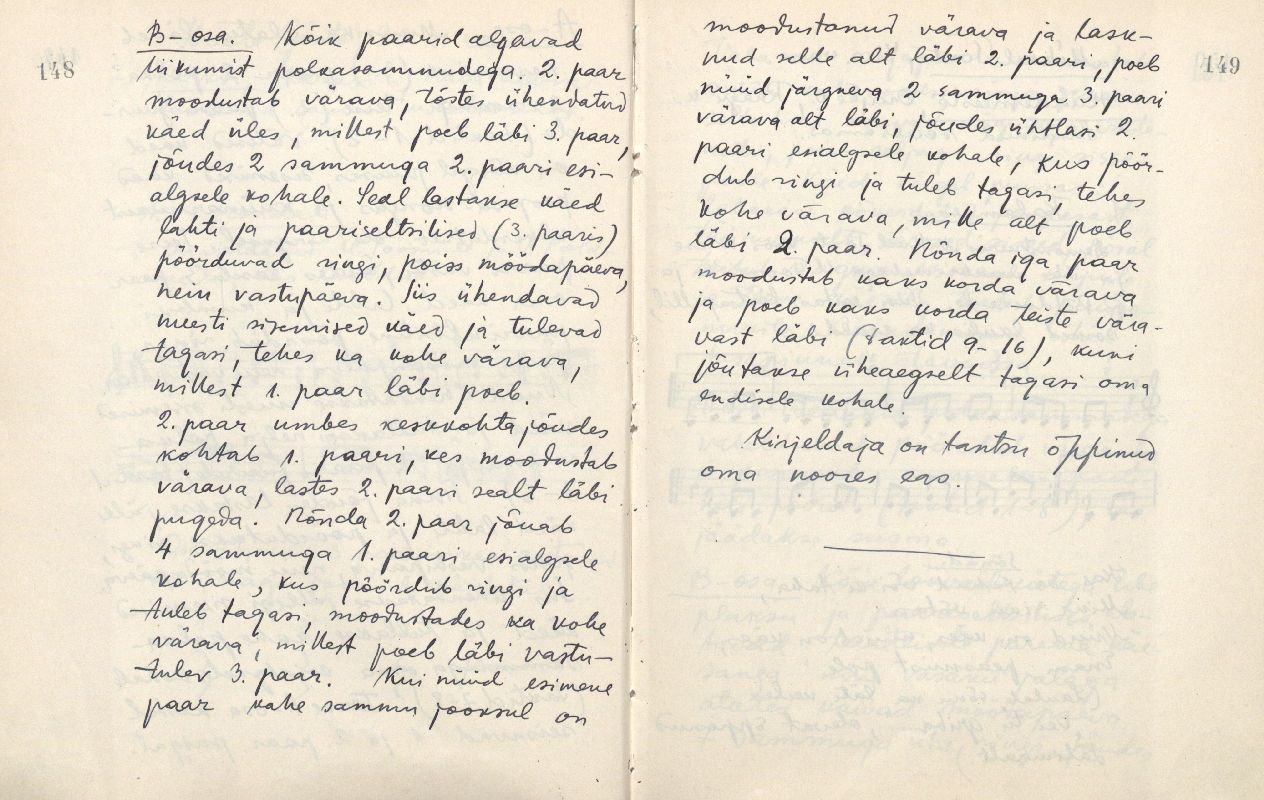 148
B-osa. Kõik paarid algavad
liikumist polkasammudega. 2. paar
moodustab värava, tõstes ühendatud
käed üles, millest poeb läbi 3. paar,
jõudes 2 sammuga 2. paari esi-
algsele kohale. Seal lastakse käed
lahti ja paariseltsilised (3. paaris)
pöörduvad ringi, poiss möödapäeva,
nein vastupäeva. Siis ühendavad
uuesti sisemised käed ja tulevad
tagasi, tehes ka kohe värava,
millest 1. paar läbi poeb.
2. paar umbes keskkohta jõudes
kohtab 1. paari, kes moodustab
värava, lastes 2. paari sealt läbi
pugeda. Nõnda 2. paar jõuab
4 sammuga 1. paari esialgsele
kohale, kus pöördub ringi ja
tuleb tagasi, moodustades ka kohe
värava, millest poeb läbi vastu-
tulev 3. paar. Kui nüüd esimene
paar kahe sammu jooksul on
149
moodustanud värava ja lask-
nud selle alt läbi 2. paari, poeb
nüüd järgneva 2 sammuga 3. paari
värava alt läbi, jõudes ühtlasi 2.
paari esialgsele kohale, kus pöör-
dub ringi ja tuleb tagasi, tehes
kohe värava, mille alt poeb
läbi 2. paar. Nõnda iga paar
moodustab kaks korda värava
ja poeb kaks korda teiste vära-
vast läbi (taktid 9-16), kuni
jõutakse üheaegselt tagasi oma
endisele kohale.
Kirjeldaja on tantsu õppinud
oma noores eas.